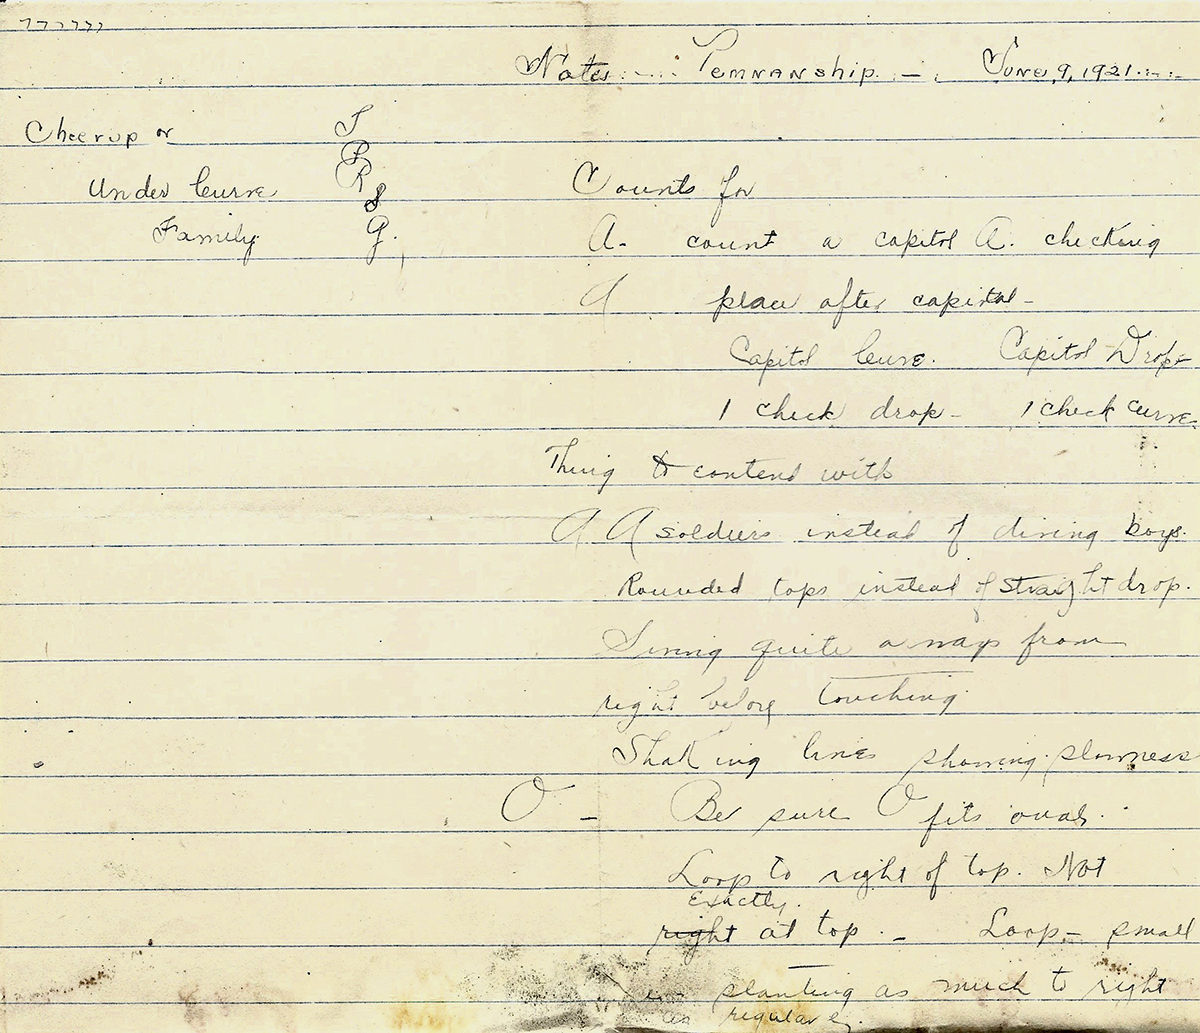 7 7 7 7 7 7
Notes Pemnanship. - June, 9, 1921
Cheerup or
Under Curve
Family.
S
P
R
S
G.
Counts for
A. count a capitol A. checking
A place after capital -
Capitol Curve. Capitol Drop -
1 check drop - 1 check curve.
Thing to contend with
A A soldiers instead of diving boys.
Rounded tops instead of straight drop.
quite a ways from
right before touching
Shaking lines showing slowness
O - Be sure O fits oval.
Loop to right of top. Not
Exactly.
right at top. - Loop - small
slanting as much to right
as regular